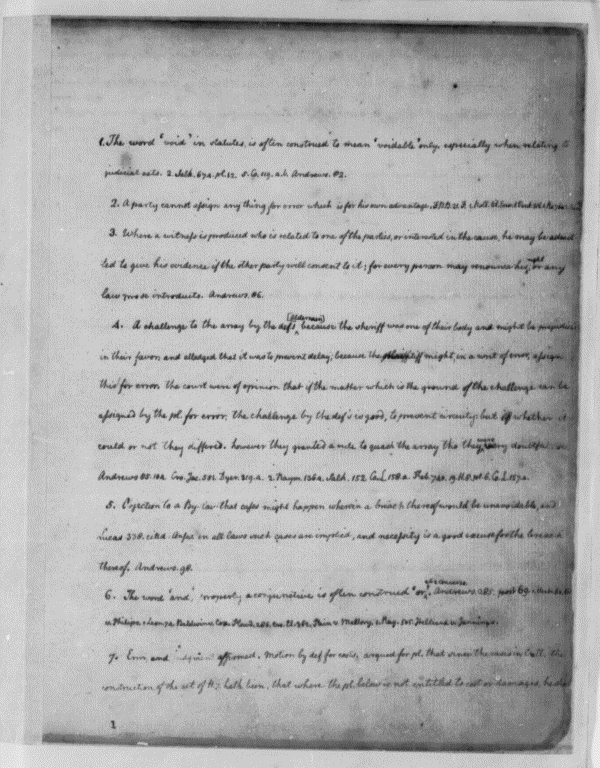 1. The word 'void' in statutes, is often construed to mean 'voidable' only, especially when relating to
judicial acts. 2. Salk. 674. pl. 12. 5. Co. 119. a. b. Andrews. 82.
2. A party cannot assign any thing for error which is for his own advantage.
3. Where a witness is produced who is related to one of the parties, or interested in the cause, he may be admit
ted to give his evidence if the other party will consent to it; for every person may renounce his right, or any
law pro se introducto. Andrews. 86.
4. A challenge to the array by the def's because the sheriff was one of their body and might be prejudiced
in their favor, and alledged that it was to prevent delay; because the might, in a writ of error, assign
this for error. the court were of opinion that if the matter which is the ground of the challenge can be
assigned by the pl. for error, the challenge by the def's is good, to prevent circuity but whether it
could or not they differed. however they granted a rule to quash the array tho' they were very doubtful
Andrews 85. 104. Cro. Jac. 551. Dyer 319. a. 2. Raym. 1364. Salk. 152. Co. L. 158. a. Co. L. 157. a.
5. Objection to a By law that cases might happen wherein a breach thereof would be unavoidable, and
Lucas 338. cited. Answ. in all laws such cases are implied, and necessity is a good excuse for the breach
thereof. Andrews. 98.
6. The word 'and,' properly a conjunctive is often construed 'or.' Andrews. 285. post 69.
v. Philips. Plowd. 286. Cro. El. Pain v. Mallory. 2. Ray. 505. v. Jennings.
7. Error, and affirmed. Motion by def. for costs, argued for pl. that since the the
construction of the act of H. 7. hath been, that where the pl. below is not entitled to cost or damages, he
1